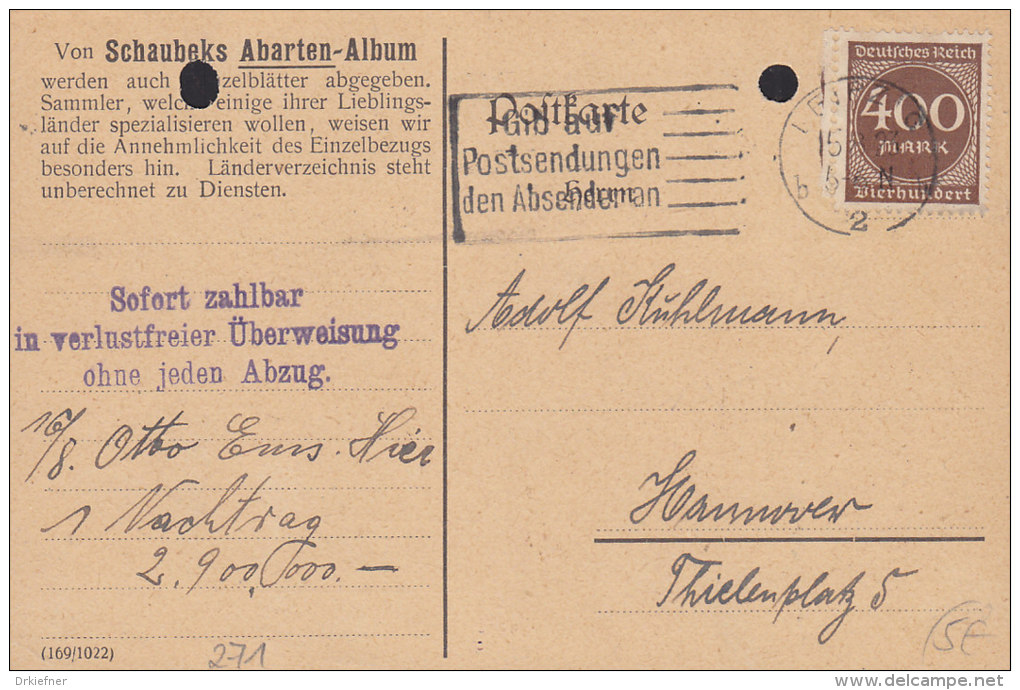 Von Schaubeks Abarten-Album
werden auch zelblätter abgegeben.
Sammler, welch einige ihrer Lieblings-
länder spezialisieren wollen, weisen wir
auf die Annehmlichkeit des Einzelbezugs
besonders hin. Länderverzeichnis steht
unberechnet zu Diensten.
Sofort zahlbar
in verlustfreier Überweisung
ohne jeden Abzug.
16/8. Otto Ems. Hier
1 Nachtrag
2.900,000.—
(169/1022)
271
Postkarte
Gib auf
Postsendungen
den Absender an
Herrn
Deutsches Reich
400
MARK
Vierhundert
15
b
N
2
Adolf Kuhlmann,
Hannover
Thielenplatz 5
(5E
Drkiefner
delcampe.net